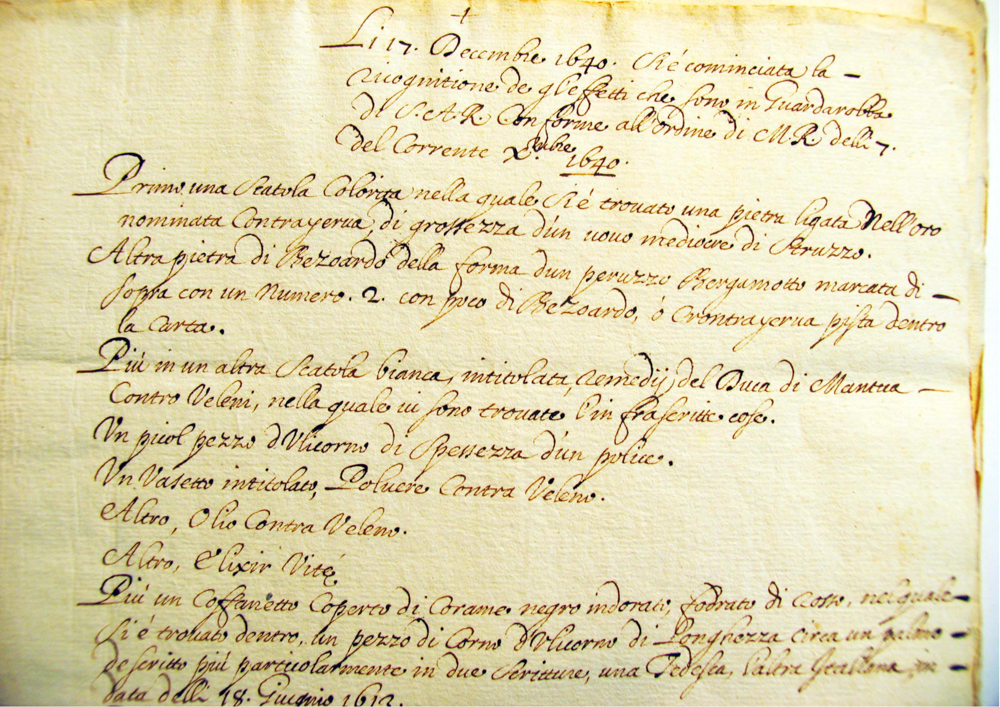 Li 17. Decembre 1640. Si é cominciata la –
ricognitione de gl'effetti che sono in Guardarobba
di S.A.R Conforme all'ordine di M.R. delli 7.
del Corrente Xmbre 1640.
Primo, una Scatola Colorita nella quale si é trovato una pietra ligata Nell'oro
nominata Contrayerva, di grossezza d'un uovo mediocre di Struzzo.
Altra pietra di Bezoardo della forma d'un peruzzo Bergamotto marcata di –
sopra con un Numero. 2. con poco di Bezoardo, ó Crontrayerva pista dentro
la Carta.
Piú in un altra Scatola bianca, intitolata, remedij del Duca di Mantua –
Contro Veleni, nella quale ui sono trovate l'infrascritte cose.
Un picol pezzo d'Ulicorno di Spessezza d'un police.
Un Vasetto intitolato, Poluere Contra Veleno.
Altro, Olio Contra Veleno.
Altro, Elixir Vitę
Piú un Coffanetto Coperto di Corame negro indorati, fodrato di rosso, nel quale –
Si é trouato dentro, un pezzo di Corno d'Ulicorno di Longhezza circa un palmo –
descritto piú particolarmente in due Scritture, una Tedesca, l'altra Italiana, in –
data delli 18. Giugnio 1612.